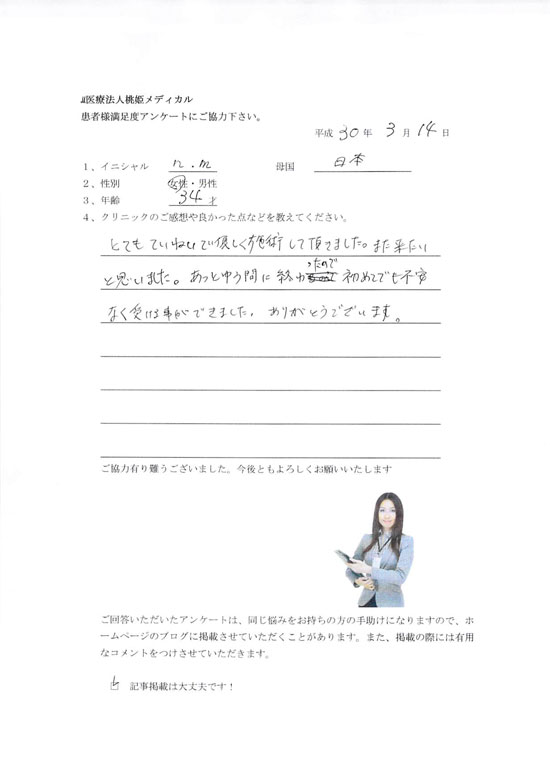 医療法人桃姫メディカル
患者様満足度アンケートにご協力下さい。
平成 30 年 3 月 14 日
1、イニシャル n.m 母国 日本
2、性別 女性・男性
3、年齢 34 才
4、クリニックのご感想や良かった点などを教えてください。
とてもていねいで優しく施術して頂てました。また来たい
と思いました。あっとゆう間に終わったので初めてでも不安
なく受ける事ができました。ありがとうございます。
ご協力有り難うございました。今後ともよろしくお願いいたします
ご回答いただいたアンケートは、同じ悩みをお持ちの方の手助けになりますので、ホ
ームページのブログに掲載させていただくことがあります。また、掲載の際には有用
なコメントをつけさせていただきます。
記事掲載は大丈夫です！